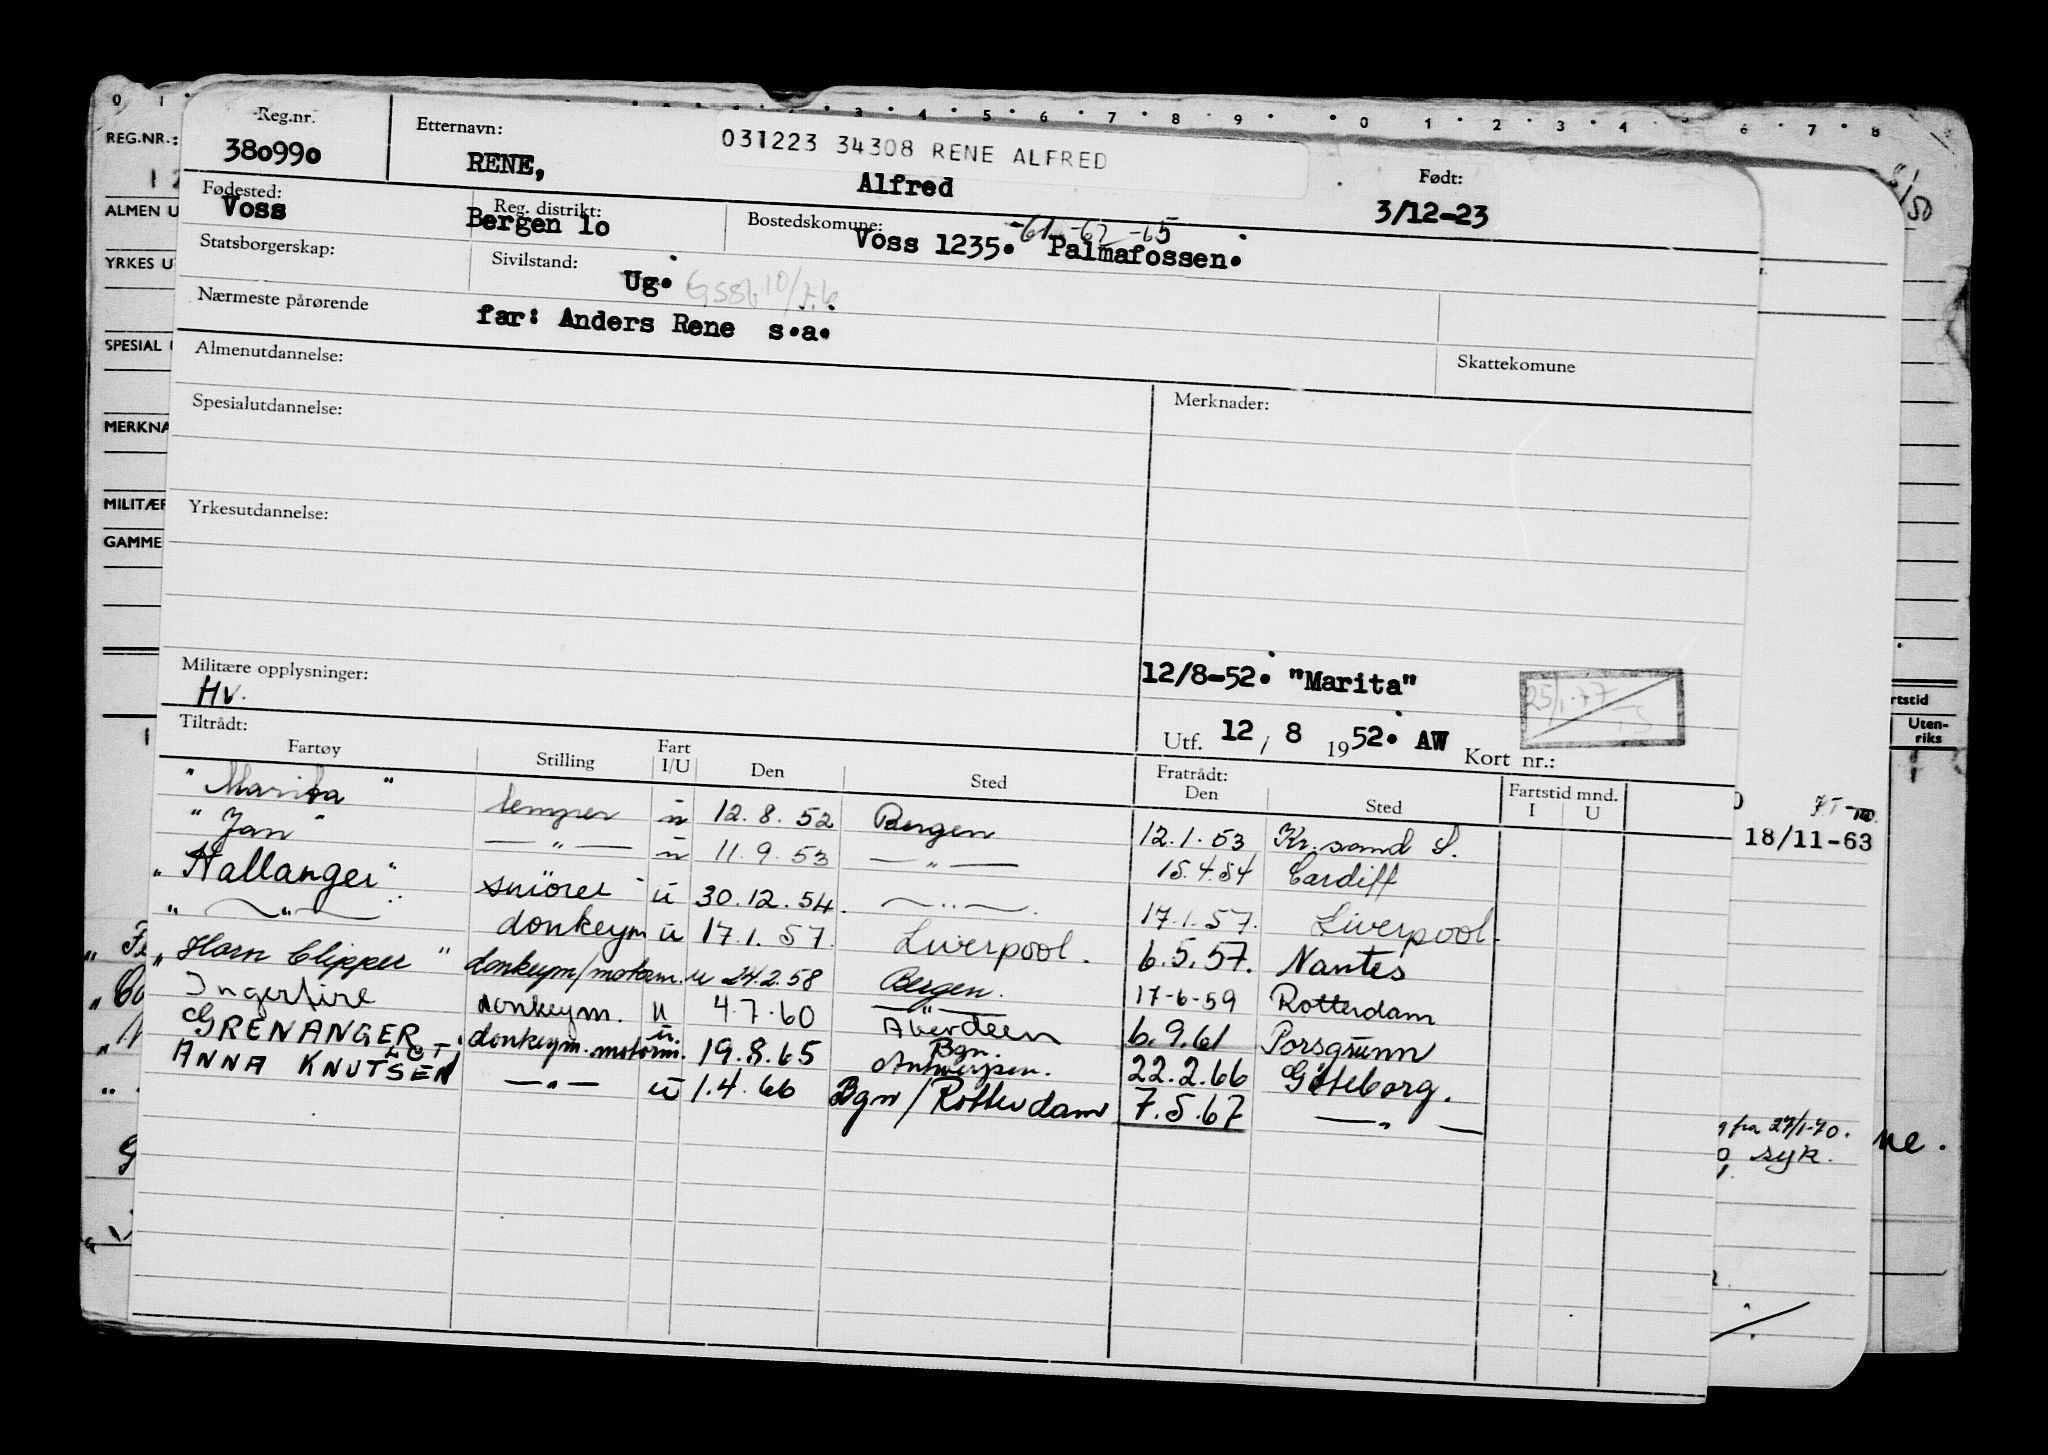 Reg.nr.
380990
Etternavn:
RENE,
031223 34308 RENE ALFRED
Alfred
Født:
3/12-23
Fødested:
Voss
Reg. distrikt:
Bergen 10
Bostedskomune:
-61 -62 -65
Voss 1235. Palmafossen.
Statsborgerskap:
Sivilstand:
Ug.
Nærmeste pårørende
far: Anders Rene s.a.
Almenutdannelse:
Skattekomune
Spesialutdannelse:
Merknader:
Yrkesutdannelse:
Militære opplysninger:
Hv.
12/8-52. "Marita"
Utf. 12 / 8 1952. AW Kort nr.:
Tiltrådt:
Fartøy Stilling Fart I/U Den Sted Fratrådt: Den Sted Fartstid mnd. I U
"Marita" lemper u 12.8.52 Bergen 12.1.53 Kr.sand S.
"Jan" — " — u 11.9.53 — " — 15.4.54 Cardiff
"Hallanger" smører u 30.12.54. — " — 17.1.57. Liverpool.
" — " — donkeym u 17.1.57. Liverpool. 6.5.57. Nantes
"Horn Clipper" donkeym/motorm. u 24.2.58 Bergen. 17-6-59 Rotterdam
Ingerfire donkeym. u 4.7.60 Aberdeen 6.9.61 Porsgrunn
GRENANGER donkeym. motorm. u. 19.8.65 Bgn. Antwerpen. 22.2.66 Göteborg.
ANNA KNUTSEN — " — u 1.4.66 Bgn/Rotterdam 7.5.67 — " —
0 1 3 4 5 6 7 8 9 0 1 2 3 4 6 7 8
REG.NR.:
ALMEN U
YRKES U
SPESIAL
MERKNA
MILITÆR
GAMME
rtstid
Uten-
riks
18/11-63
fra 27/1-70.
syk.
ne.